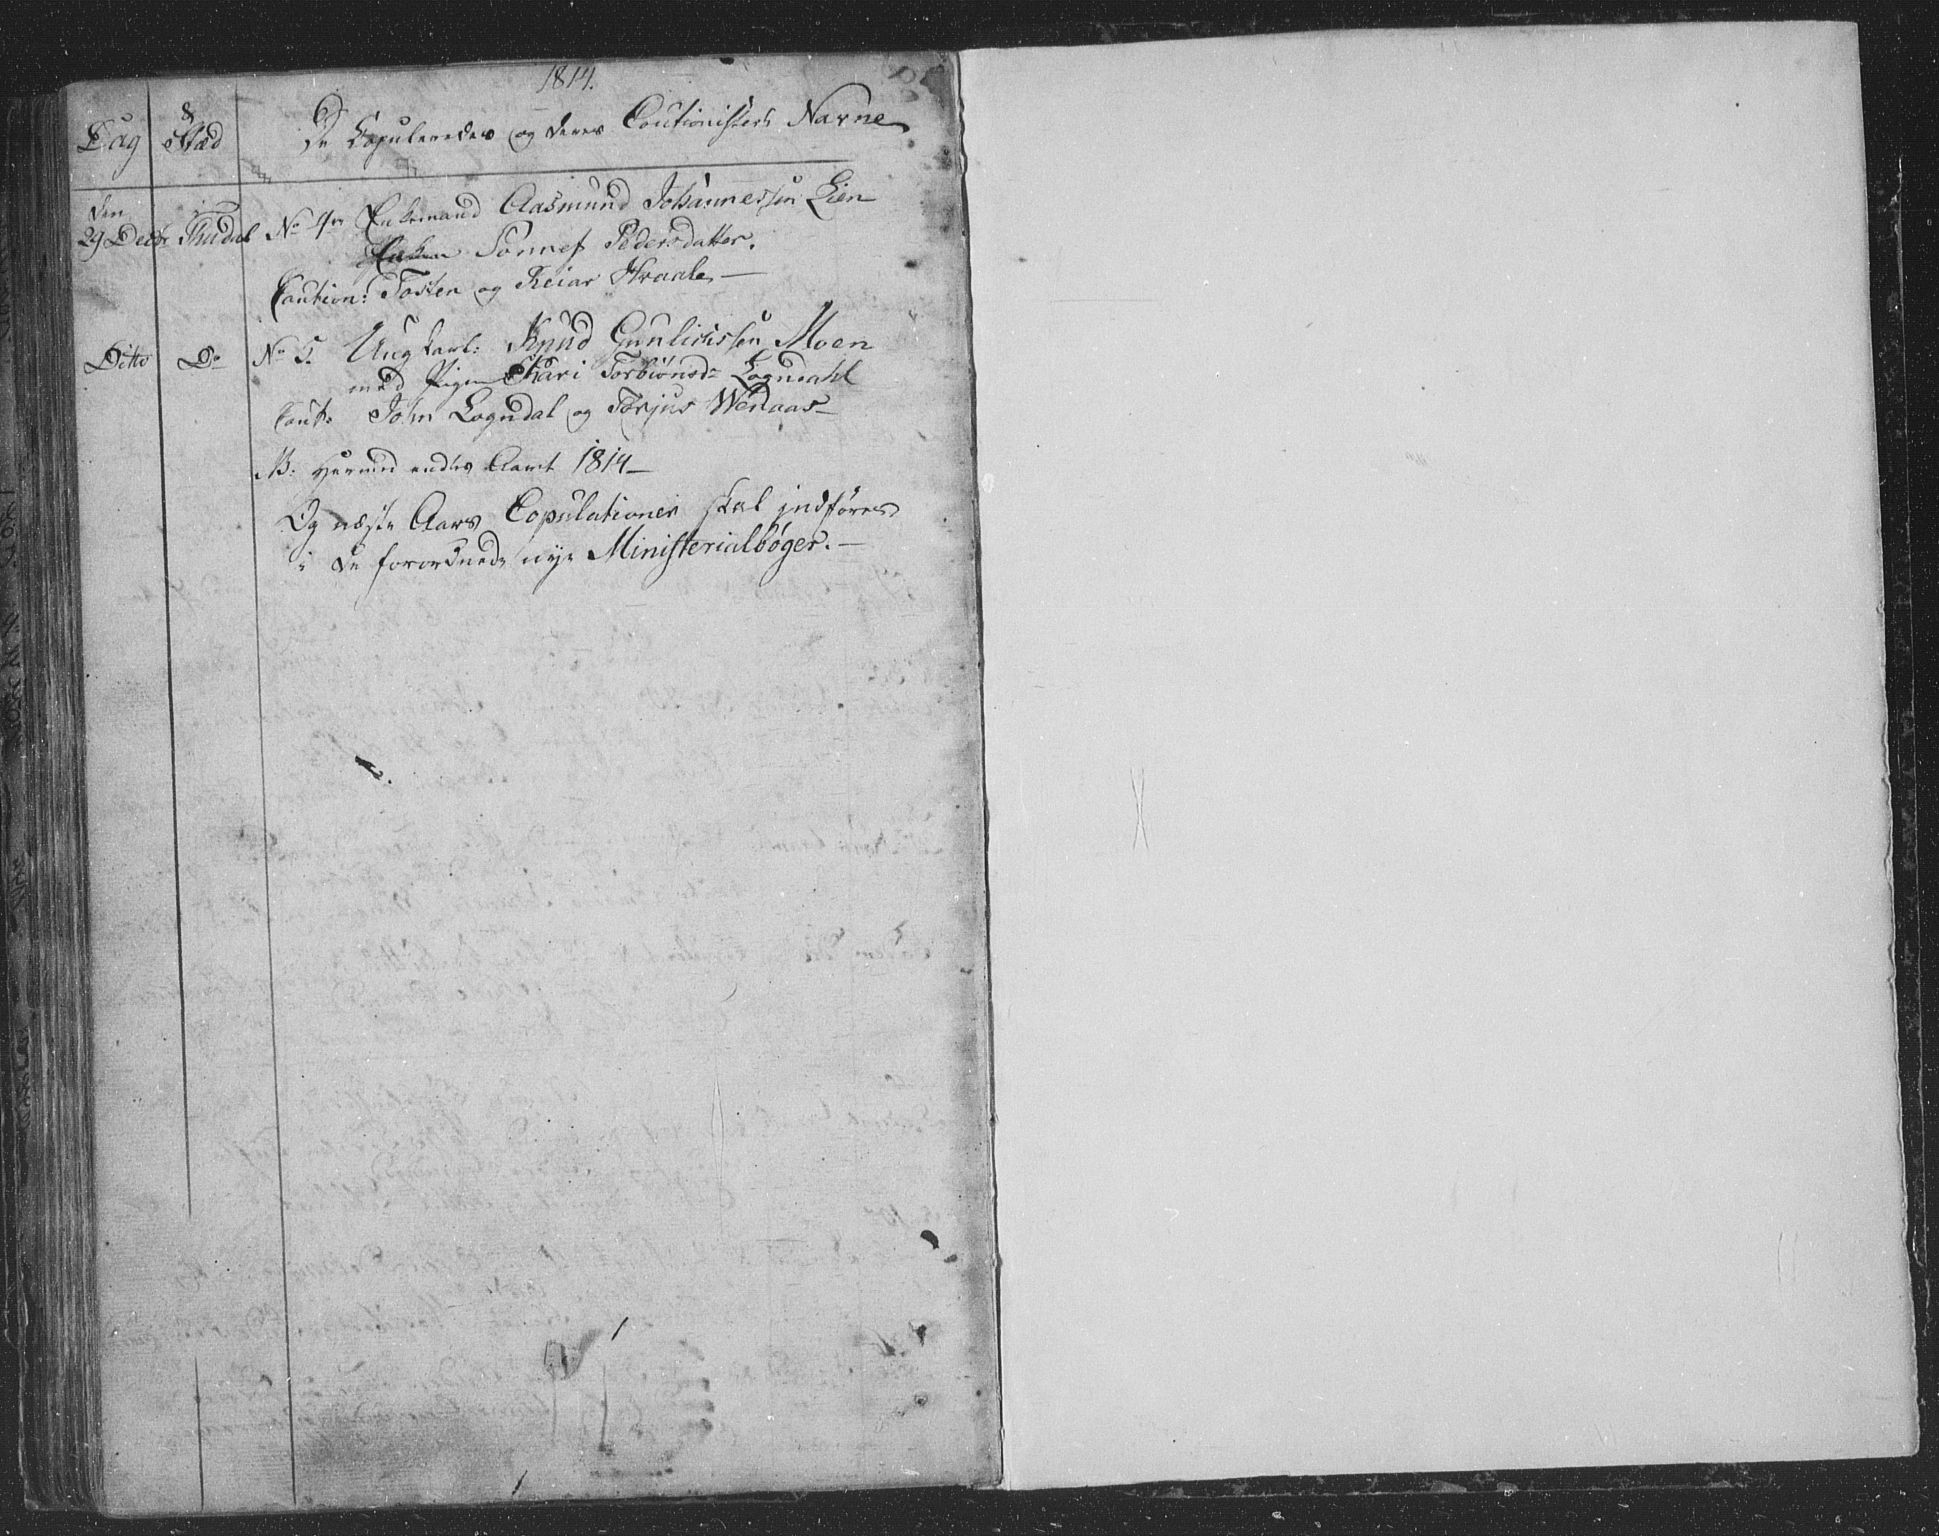 1814.
Dag & Stæd De Copuleredes og deres Cautionisters Navne
den
29 Decbr Thudal No 4 Enkemand Aasmund Johannessen Lien
Enken Sønnef Pedersdatter.
Caution: Tosten og Reiar Hraale —
Ditto Do No 5. Ungkarl: Knud Gunlichssen Moen
med Pigen Kari Torbiønsd: Logndahl
Caut: John Logndal og Torjus Wenaas —
NB: Hermed endes Aaret 1814 —
Og næste Aars Copulationer skal indføres
i de forordnede nye Ministerialbøger. —